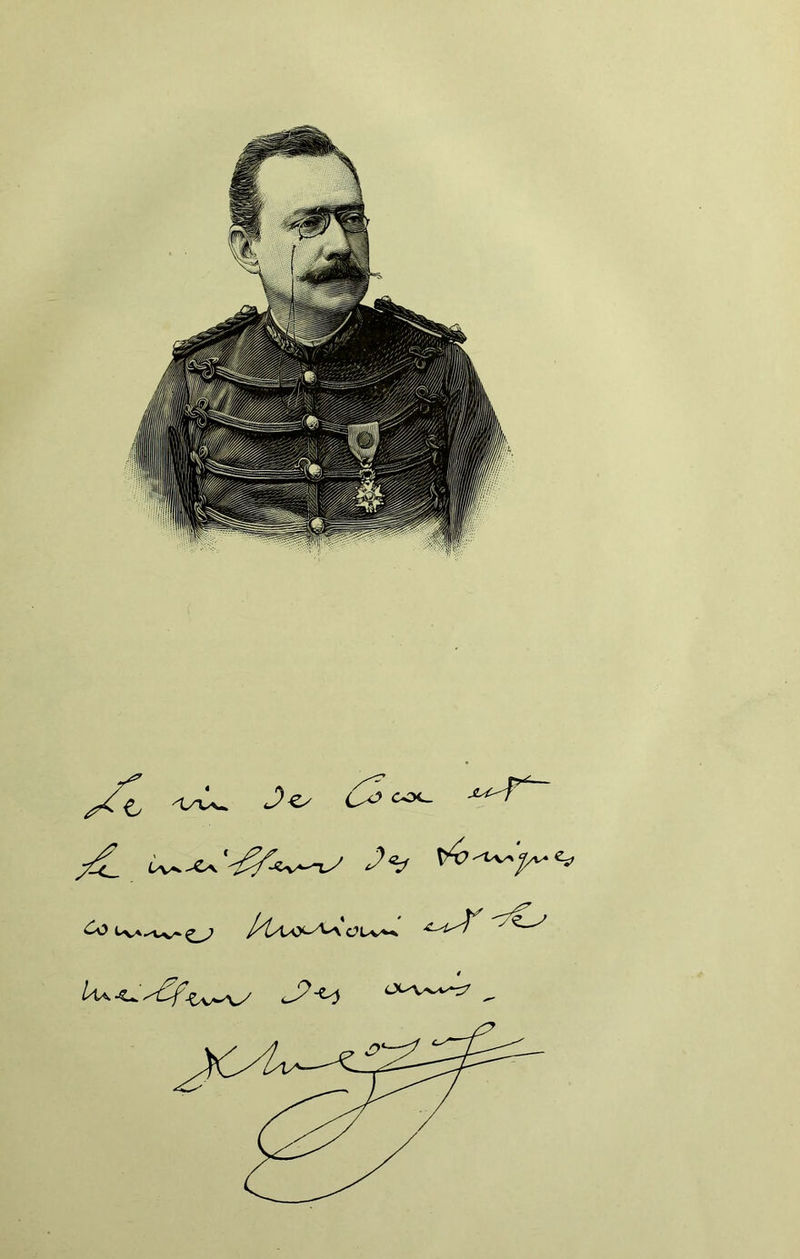 Le vin de Coca est
le meilleur des toniques
comme Mariani est le
meilleur des amis _